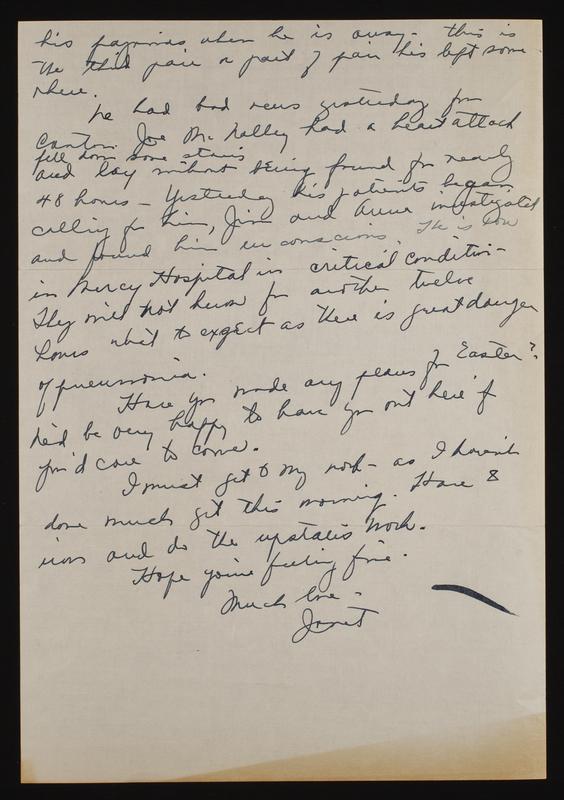 his pajamas when he is away - this is
the third pair or part of pair his left some
where.
We had bad news yesterday from
Canton. Joe McNalley had a heart attack
fell down some stairs
and lay without being found for nearly
48 hours - Yesterday his patients began
calling for him, Jim and Anne investigated
and found him unconscious. He is now
in Mercy Hospital in critical condition -
They will not know for another twelve
hours what to expect as there is great danger
of pneumonia.
Have you made any plans for Easter?
We'd be very happy to have you out here if
you'd care to come.
I must get to my work - as I haven't
done much yet this morning. Have to
iron and do the upstairs work.
Hope you're feeling fine.
Much love -
Janet